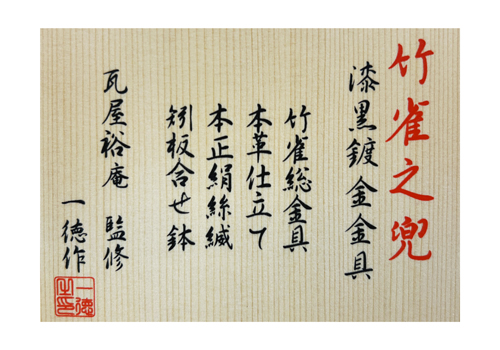 竹雀之兜
漆黒鍍金金具
竹雀総金具
本革仕立て
本正絹絲縅
矧板合せ鉢
瓦屋裕庵 監修
一徳作
一徳之印